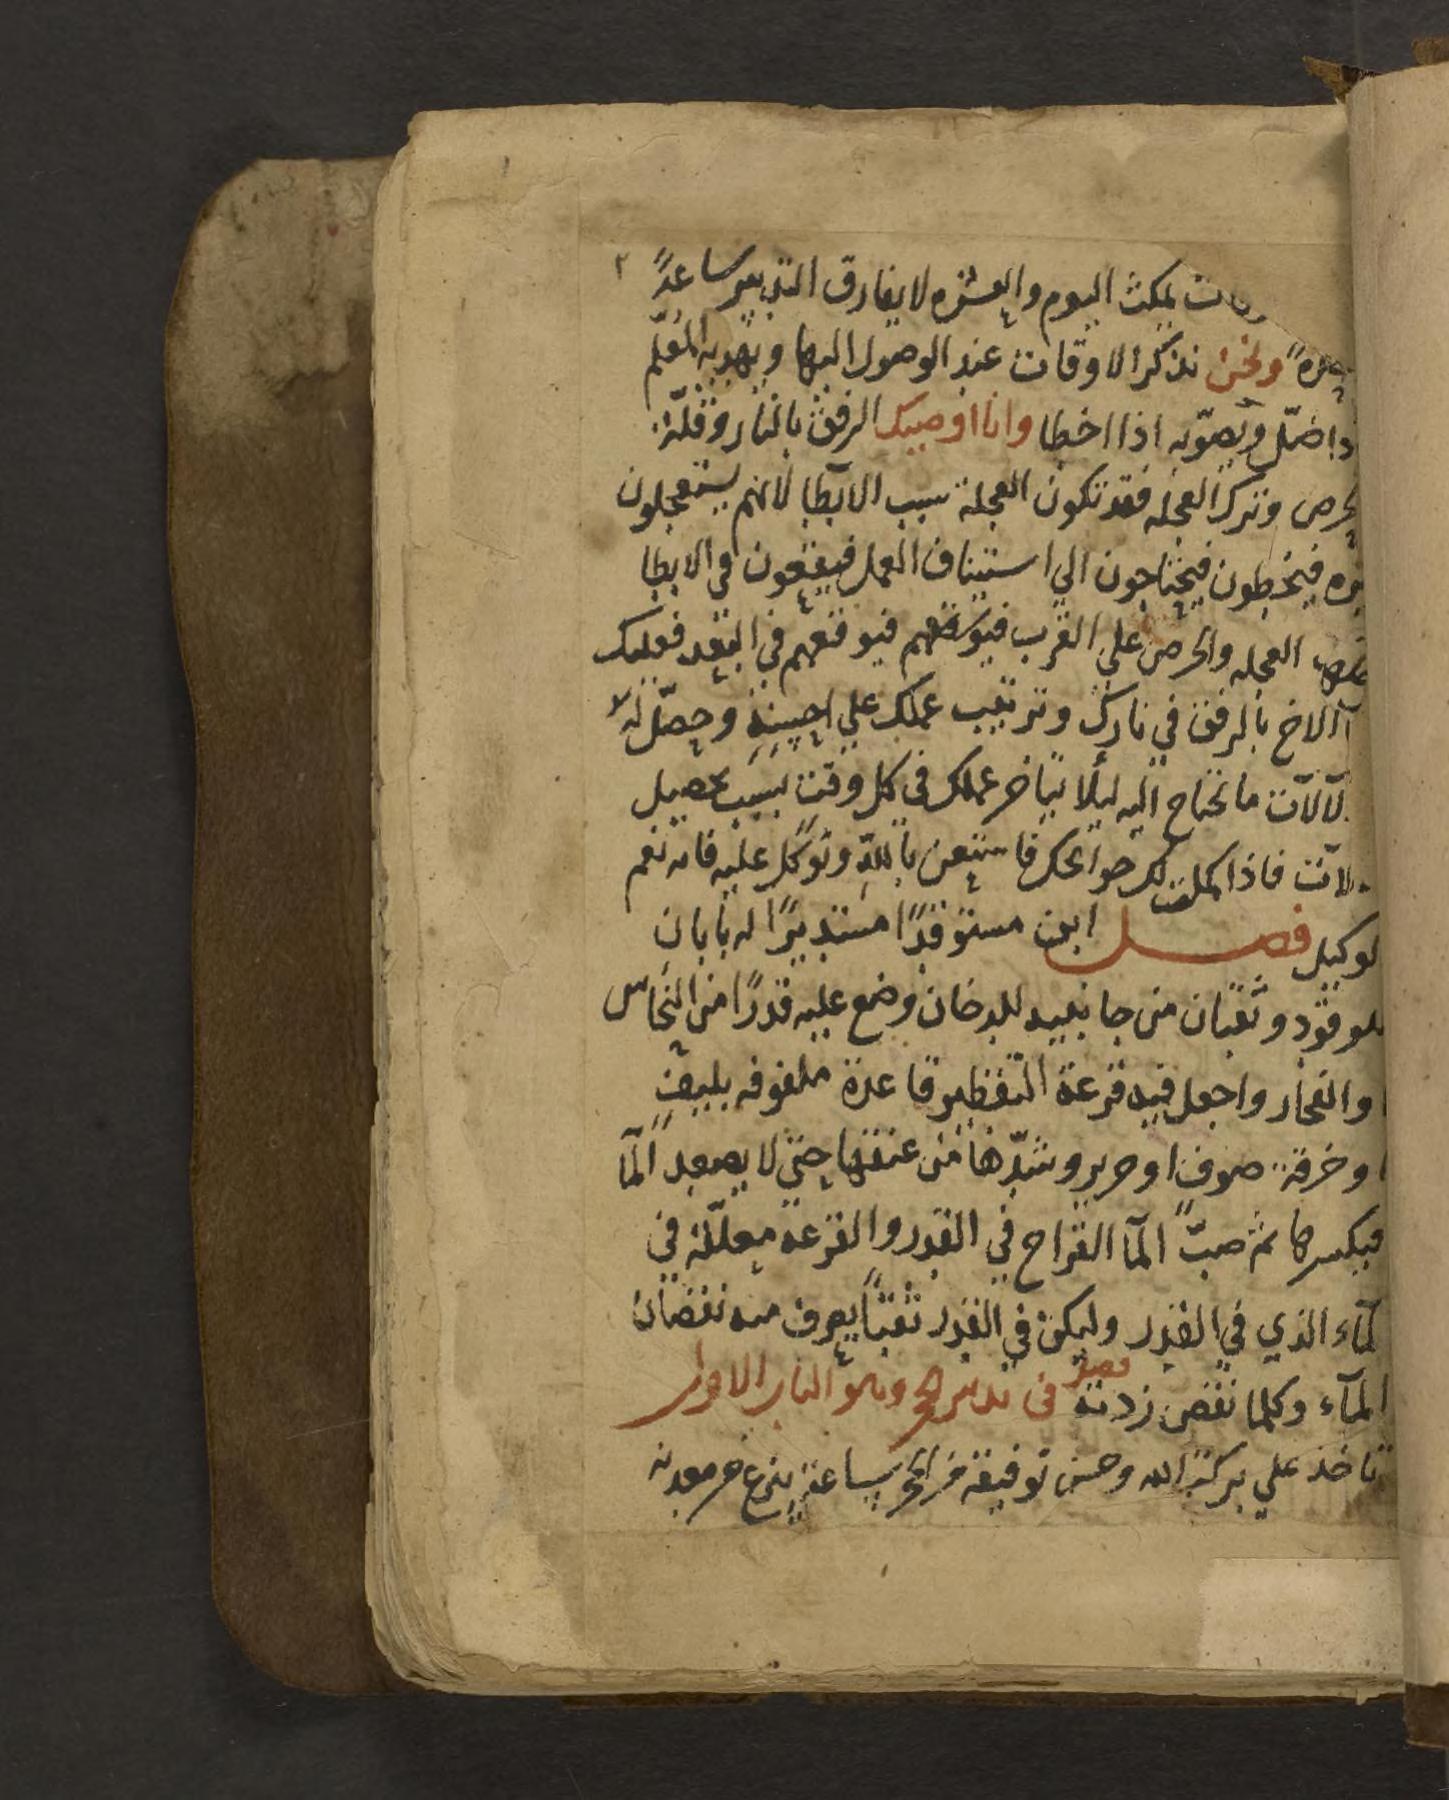 ٢
يمكث اليوم والعشره لا يفارق التدبير ساعةً
ونحن نذكر الاوقات عند الوصول اليها ويهديه المعلّم
ضلّ ويصوّبه اذا اخطا وانا اوصيك الرفق بالنار وقلّة
وترك العجله فقد تكون العجلة سبب الابطا لانهم يستعجلون
فيخطون فيحتاجون الي استيناف العمل فيقعون في الابطا
العجله والحرص علي القرب فيوقعهم في البعد فعليك
الاخ بالرفق في نارك وترتيب عملك علي احسنه وحصّل
الالات ما تحتاج اليه ليلًا يتاخر عملك في كل وقت بسبب تحصيل
فاذا كملت لك حوايجك فاستعن بالله وتوكل عليه فانه نعم
لوكيل فصل ابن مستوقدًا مستديرًا له بابان
للوقود وثقبان من جانبيه للدخان وضع عليه قدرًا من النحاس
والفخار واجعل فيه قرعة التقطير قاعدة ملفوفه بليف
وخرقة صوف او حرير وشدّها من عنقها حتي لا يصعد المآ
فيكسرها ثم صبّ المآ القراح في القدر والقرعة معلّقة في
لمآء الذي في القدر وليكن في القدر ثقبًا يعرف منه نقصان
المآء وكلما نقص زدته فصل في تدبير الحجر وهو الباب الاول
تاخذ علي بركة الله وحسن توفيقه من الحجر ساعة ينزع من معدنه